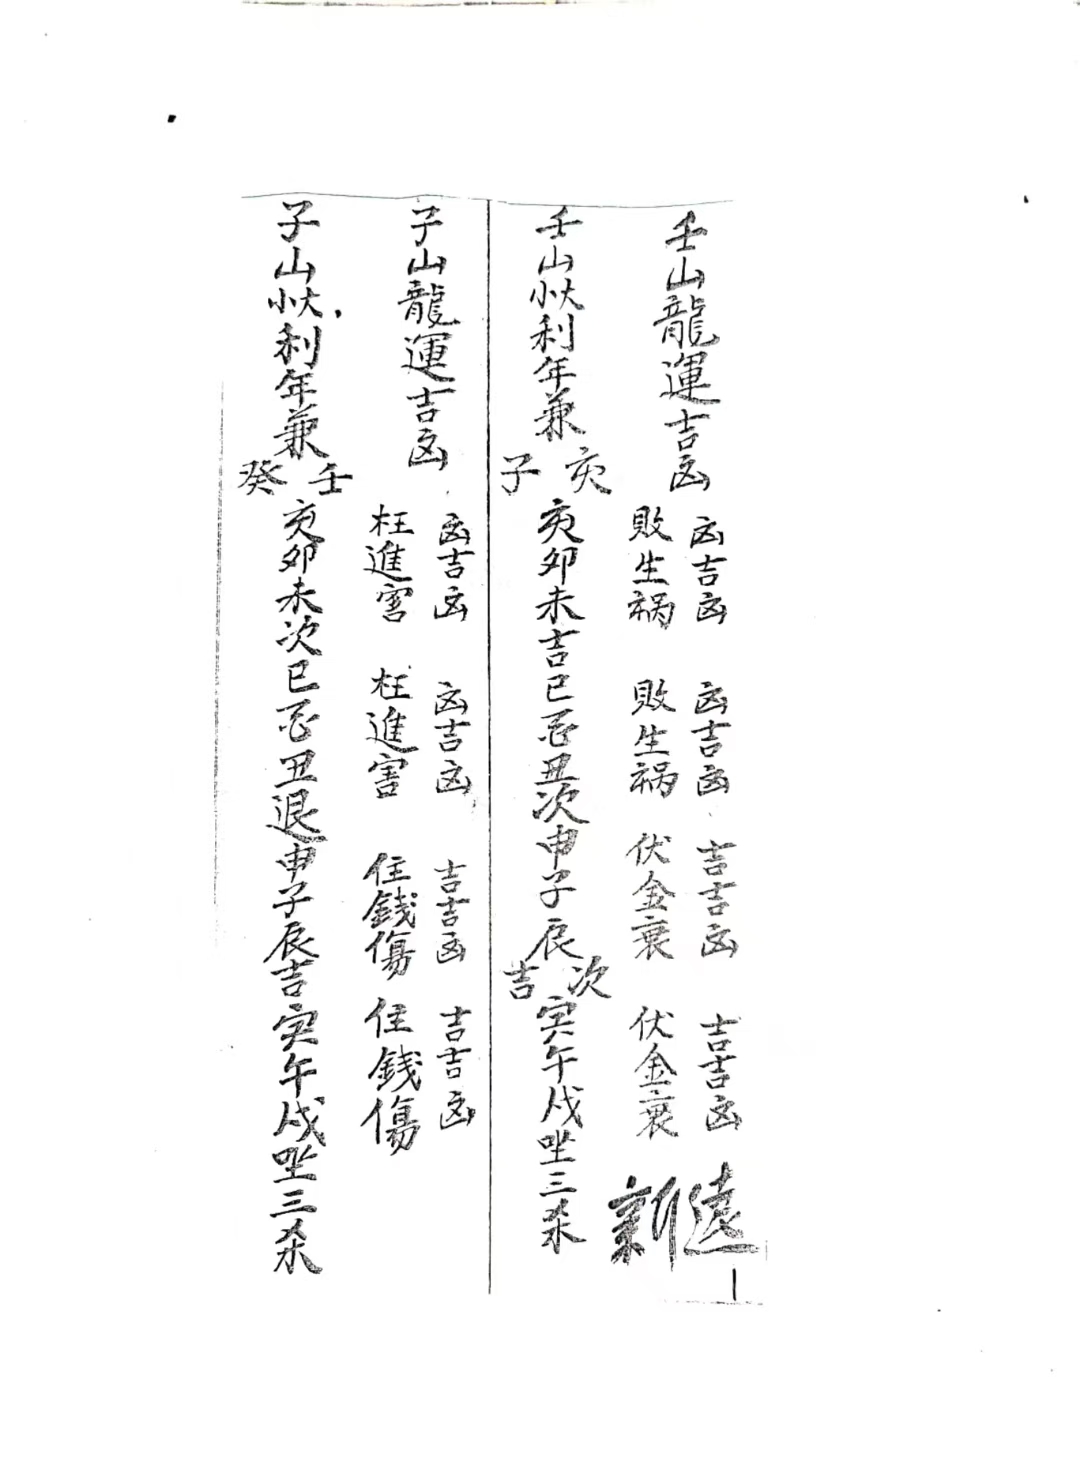 壬山龍運吉凶
凶吉凶 凶吉凶 吉吉凶 吉吉凶
敗生祸 敗生祸 伏金衰 伏金衰
遠
新
壬山大小利年兼
亥
子
亥卯未吉巳忌丑次申子辰
次
吉
寅午戌坐三杀
子山龍運吉凶
凶吉凶 凶吉凶 吉吉凶 吉吉凶
枉進害 枉進害 住錢傷 住錢傷
子山大小利年兼
壬
癸
亥卯未次巳忌丑退申子辰吉寅午戌坐三杀